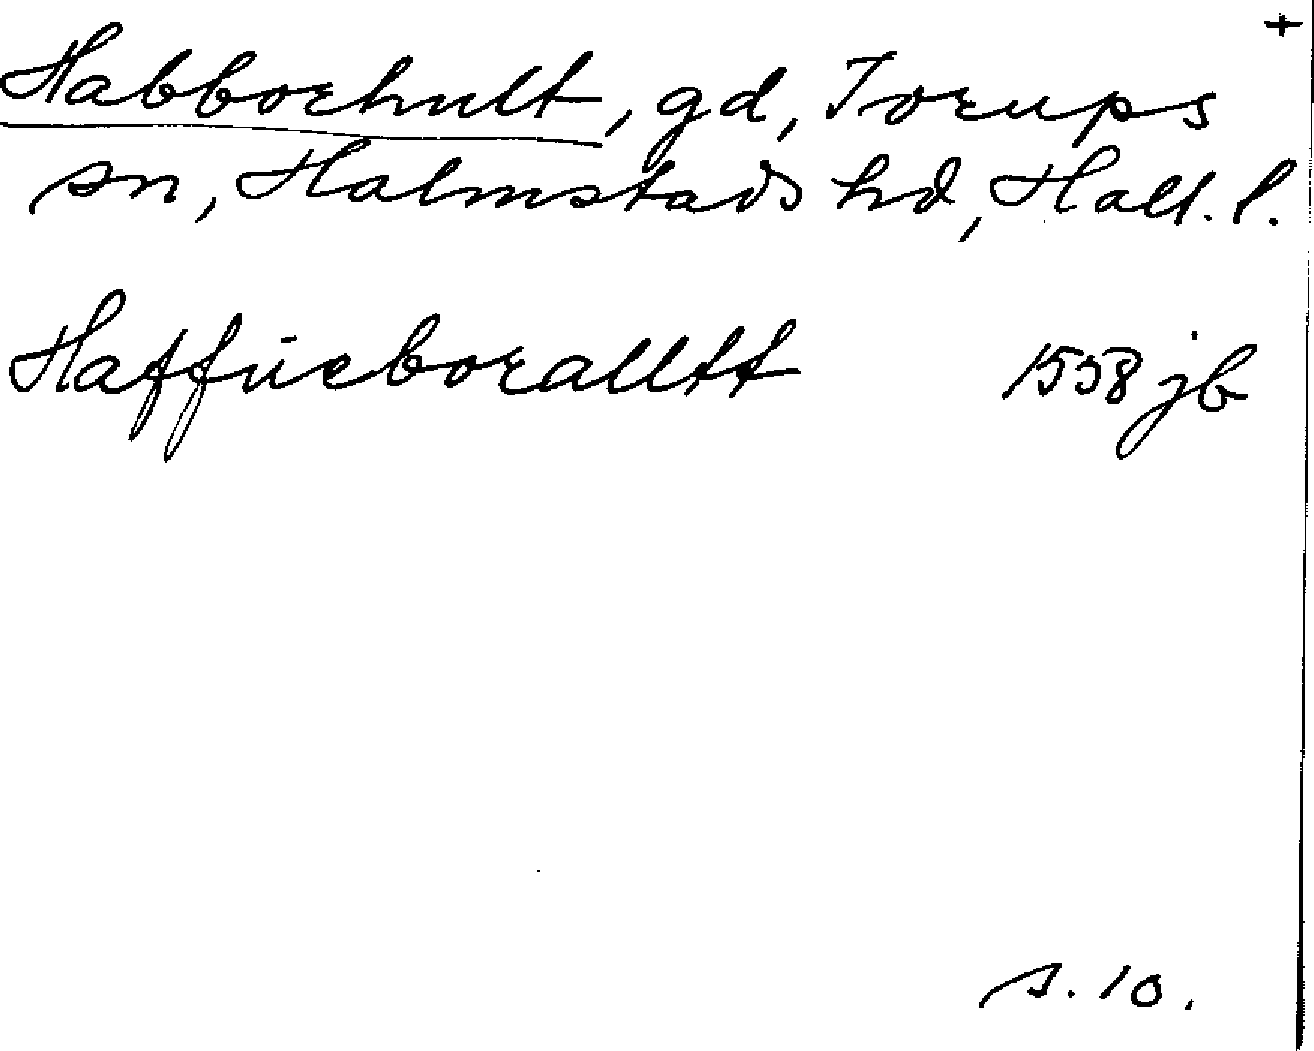 +
Habborhult, gd, Torups
sn, Halmstads hd, Hall. l.
Haffüeboralltt 1558 jb
s. 10.